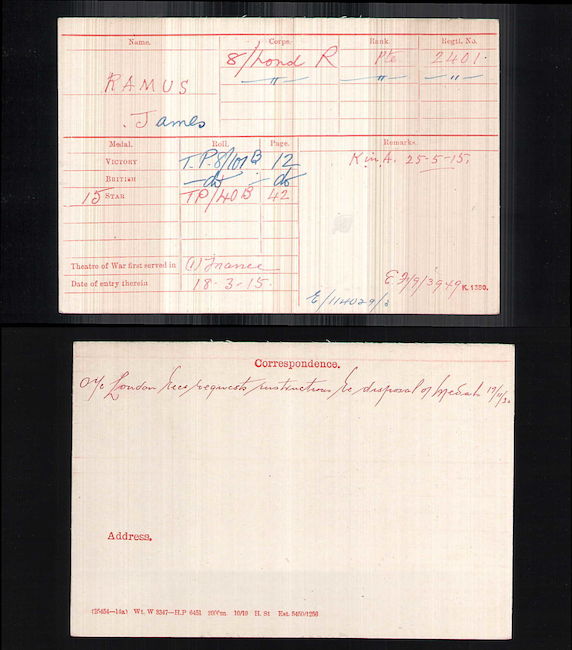 Name. Corps. Rank. Regtl. No.
8/Lond R Pte 2401.
" " "
RAMUS
James
Medal. Roll. Page. Remarks.
VICTORY T.P. 8/101 B 12 K in A. 25-5-15.
BRITISH do do
15 STAR TP/40 B 42
Theatre of War first served in (1) France
Date of entry therein 18-3-15.
K. 1380.
Correspondence.
O i/c London Recs requests instructions re disposal of Medals
Address.
(35454—14a) Wt. W 3347—H.P 6451 200m. 10/19 H. St Est. 5450/1256